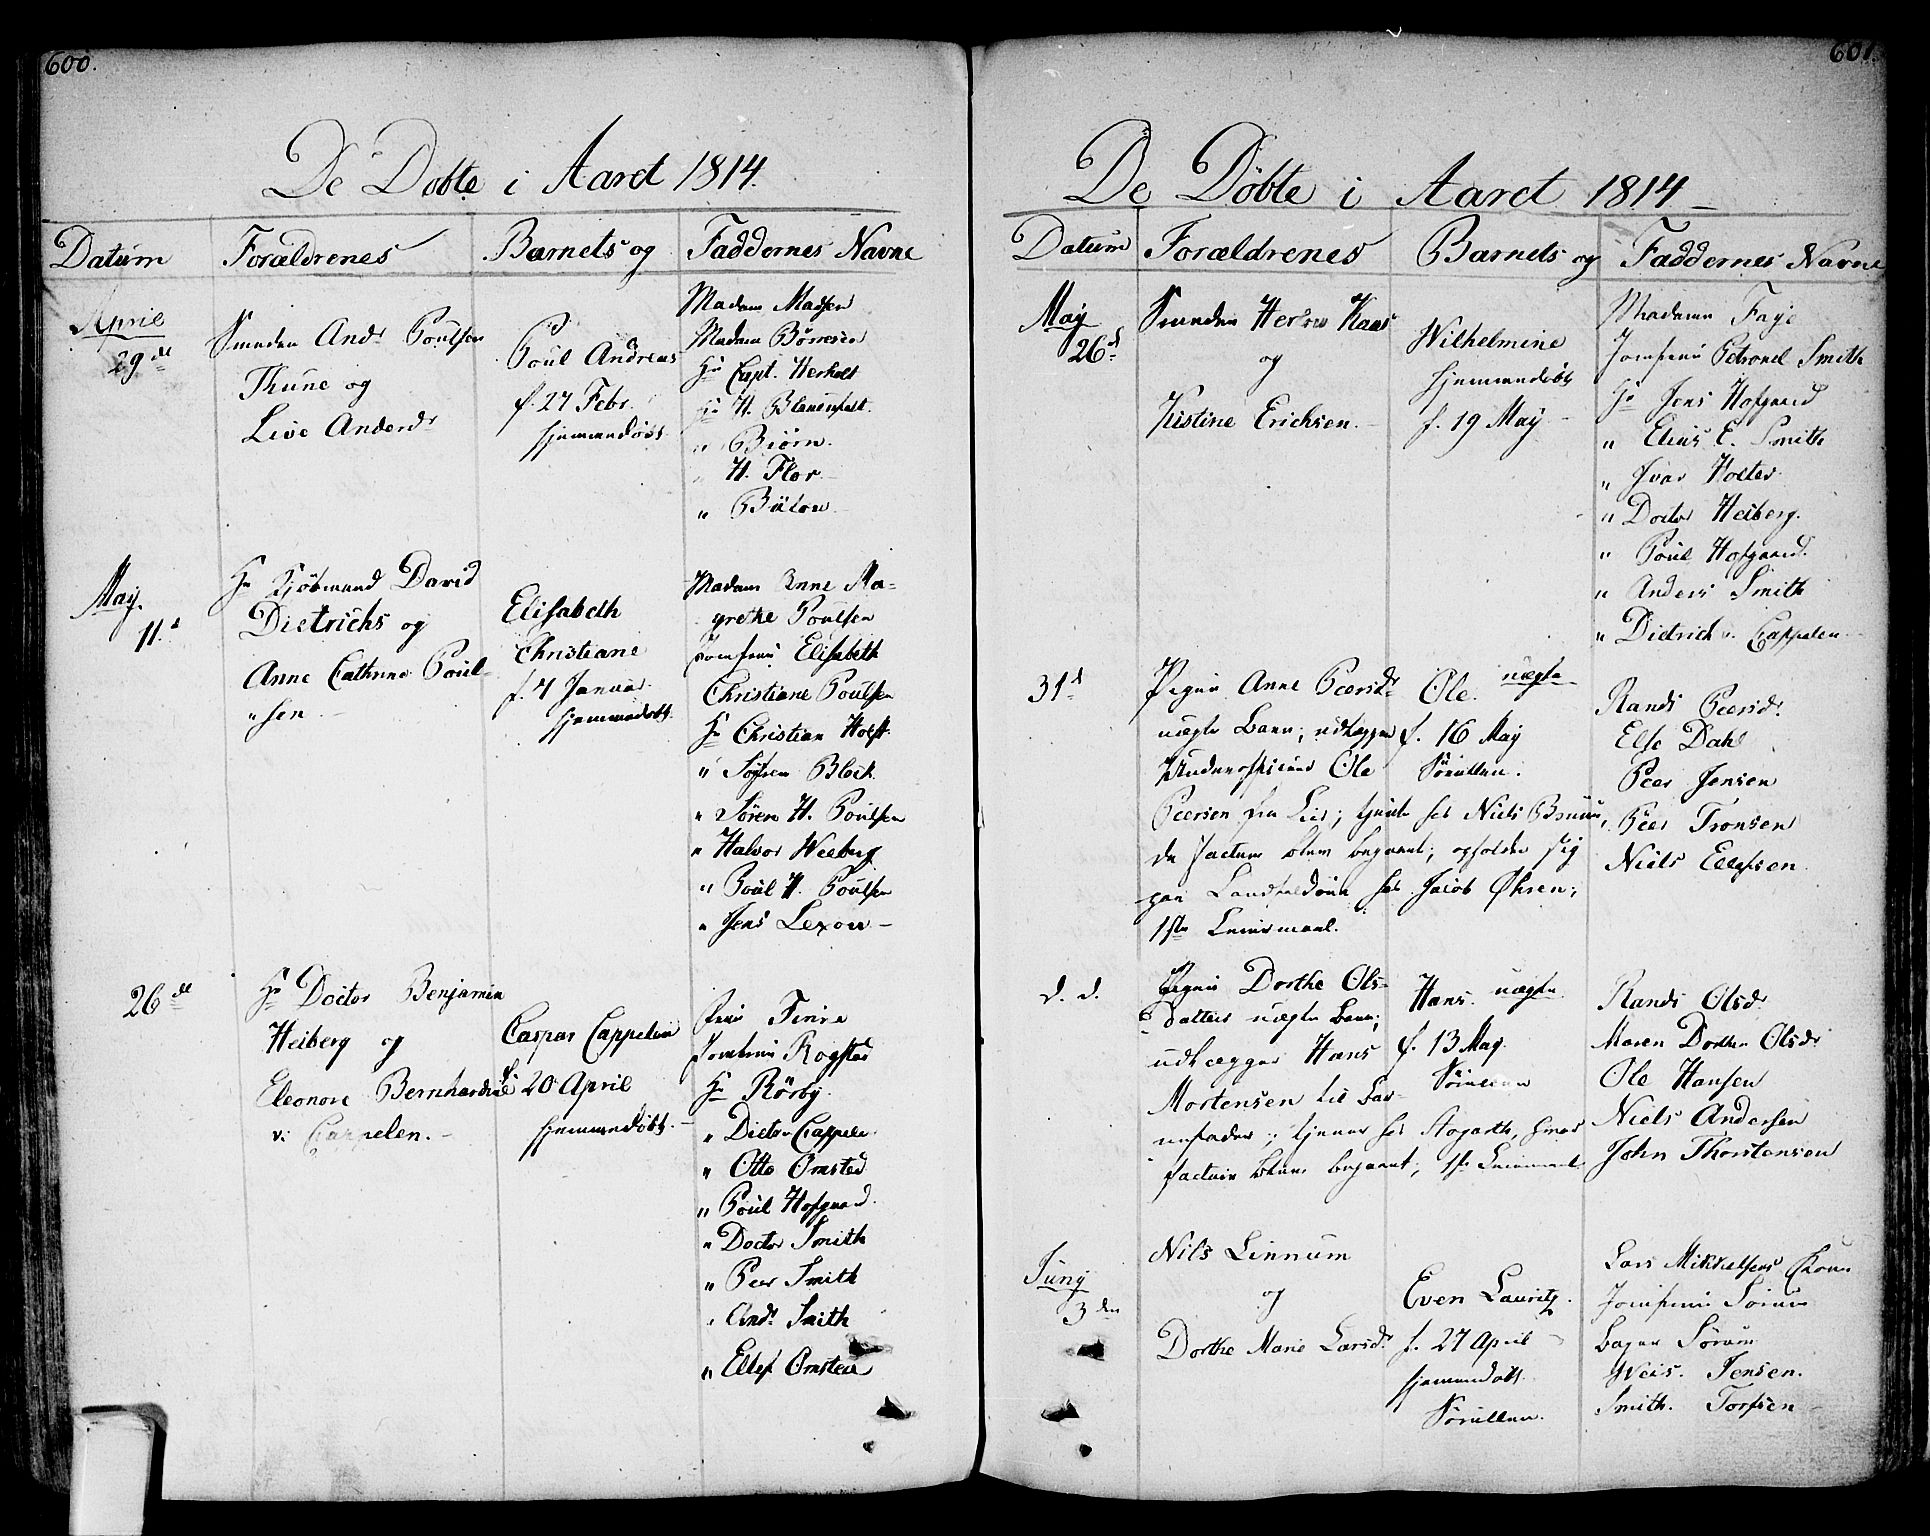 600.
De Døbte i Aaret 1814.
Datum Forældrenes Barnets og Faddernes Navne
April
29de
Smeden Andr Poulsen
Thune og
Live Andersdr
Poul Andreas
f. 27 Febr.
hjemmedøbt
Madam Madsen
Madam Börresen
Hr Capt. Herholt
Hr H. Blauenfelt.
" Biörn.
" H. Flor
" Bülow
May.
11te
Hr Kjøbmand David
Dietrichs og
Anne Cathrine Poul-
"sen
Elisabeth
Christiane
f. 7 Januar
hjemmedøbt.
Madam Anne Ma-
grethe Poulsen
Jomfru Elisabeth
Christiane Poulsen
Hr Christian Holst
" Søfren Block
" Sören H. Poulsen
" Halvor Weeberg
" Poul H. Poulsen
" Jens Lexow
26de
Hr Doctor Benjamin
Heiberg og
Eleonore Bernhardine
v. Cappelen.
Caspar Cappelen
f. 20 April
hjemmedøbt.
Frue Finne
Jomfrue Rogstad
Hr Rörby.
" Dietr. Cappelen
" Otto Omsted
" Poul Hofgaard
" Doctor Smith
" Peer Smith
" Andr. Smith
" Ellef Omsted
601.
De Døbte i Aaret 1814
Datum Forældrenes Barnets og Faddernes Navne
May
26d
Smeden Kaas
og
Kistine Erichsen.
Wilhelmine
hjemmedøbt
f. 19 May
Madame Faye
Jomfrue Petronel Smith
Hr Jens Hofgaard
" Elias C. Smith
" Ivar Holter
" Doctor Heiberg.
" Poul Hofgaard.
" Anders Smith
" Dietrich v. Cappelen
31d
Pigen Anne Peersdr
uægte Barn; udlægger
Underofficeer Ole
Peersen fra Lier; tjente hos Niels Bruun,
da factum blev begaaet; opholder sig
paa Landfaldøen hos Jacob Øhren;
1ste Leiermaal.
Ole. uægte
f. 16 May
Rands Peersdr.
Else Dahl
Peer Jensen
Peer Tronsen
Niels Ellefsen
d. d.
Pigen Dorthe Ols-
datters uægte Barn;
udlægger Hans
Mortensen til Bar-
nefader; tjener hos Aagarth, hvor
factum blev begaaet; 1ste Leiermaal
Hans. uægte
f. 13 May.
Rands Olsdr
Maren Dorthe Olsdr
Ole Hansen
Niels Andersen
John Thorstensen
Juny
3den
Nils Linnum
og
Dorthe Marie Larsdr.
Even Lauritz.
f. 27 April
hjemmedøbt
Lars Mikkelsens Kone
Jomfrue Sörum
Bager Sörum
Weis. Jensen.
Smith. Torfsen